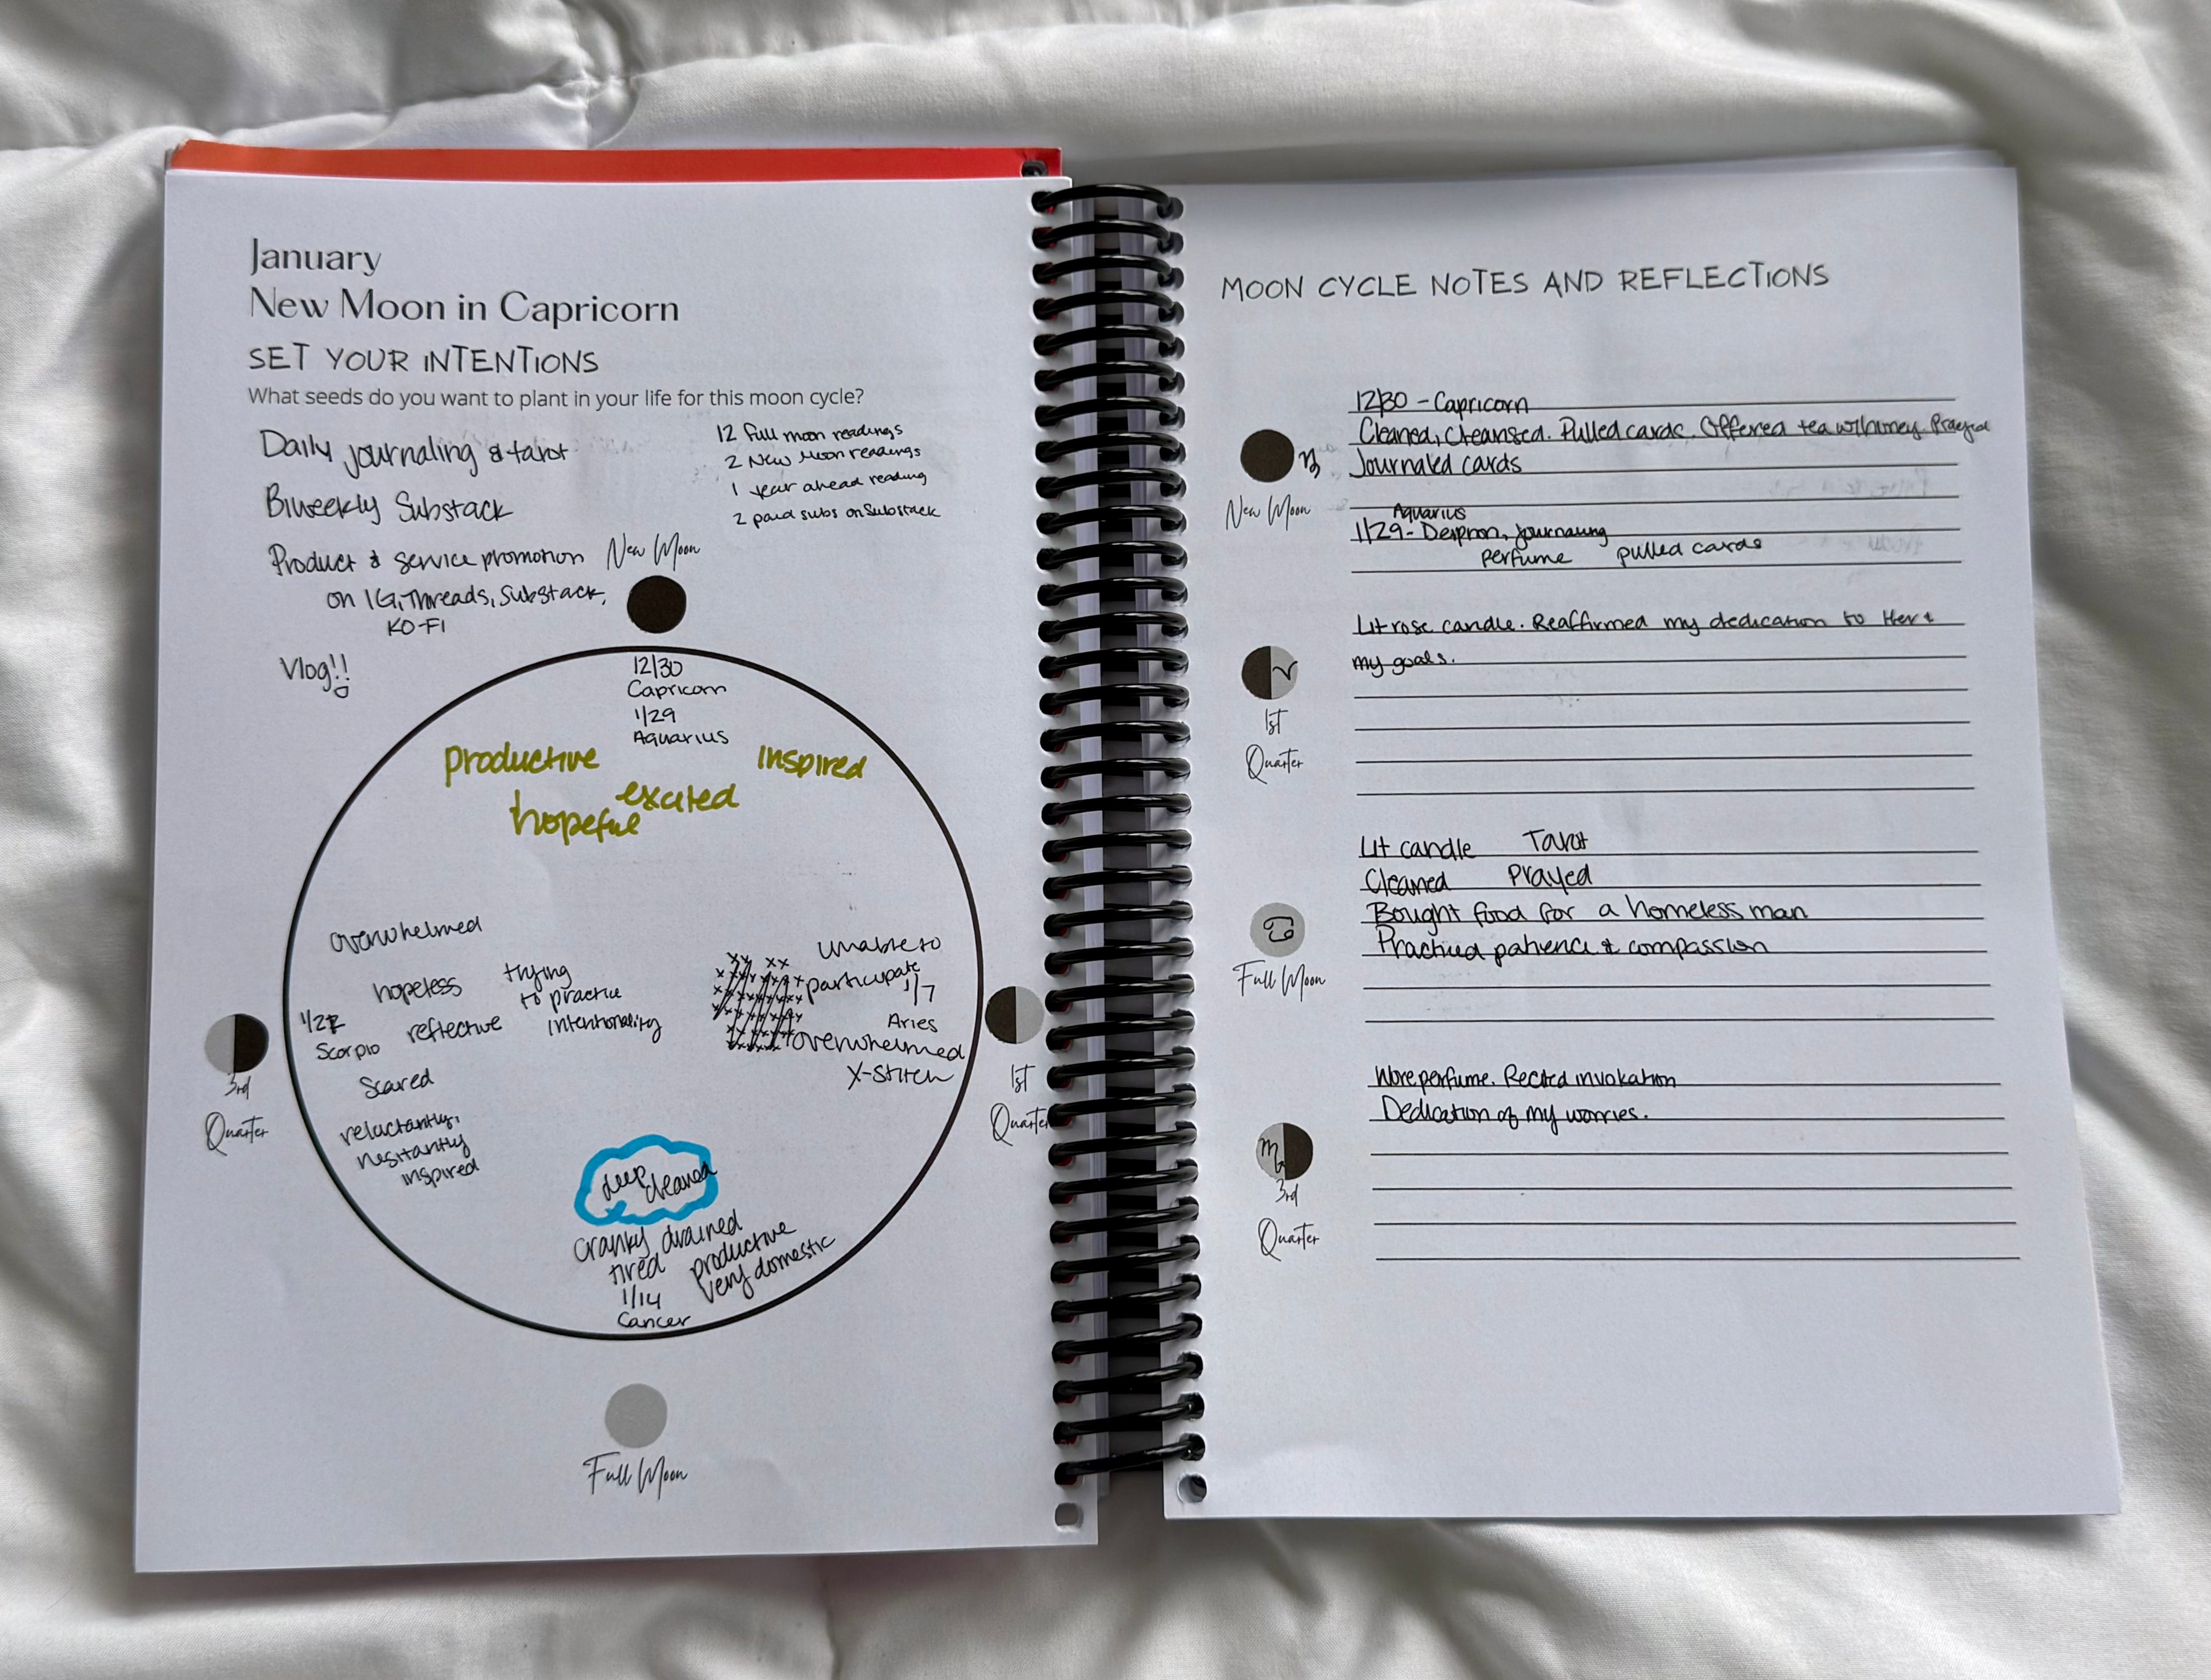 January
New Moon in Capricorn
SET YOUR INTENTIONS
What seeds do you want to plant in your life for this moon cycle?
Daily journaling & tarot
Biweekly Substack
Product & service promotion
on IG, Threads, Substack,
KO-FI
Vlog!!
12 Full moon readings
2 New Moon readings
1 year ahead reading
2 paid subs on Substack
New Moon
12/30
Capricorn
1/29
Aquarius
productive
inspired
excited
hopeful
unable to
participate
1/7
Aries
overwhelmed
X-stitch
1st
Quarter
deep
cleaned
cranky drained
tired productive
very domestic
1/14
Cancer
Full Moon
overwhelmed
hopeless
trying
to practice
intentionality
reflective
Scorpio
Scared
reluctantly,
hesitantly
inspired
3rd
Quarter
MOON CYCLE NOTES AND REFLECTIONS
New Moon
12/30 - Capricorn
Cleaned, Cleansed. Pulled cards. Offered tea w/honey. Prayed
Journaled cards
Aquarius
1/29- journaling
perfume pulled cards
1st
Quarter
Lit rose candle. Reaffirmed my dedication to Her &
my goals.
Full Moon
Lit candle Tarot
Cleaned Prayed
Bought food for a homeless man
Practiced patience & compassion
3rd
Quarter
Wore perfume. Recited invokation
Dedication of my worries.